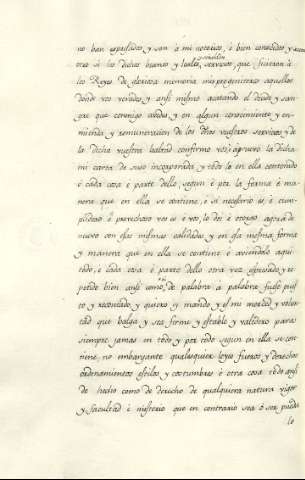 no han espresadas y son a mi notorias, e bien conocidas y acatan
otro si los dichos buenos y leales servicios, que hicieron a
los Reyes de gloriosa memoria mis progenitores aquellos
donde vos venides y ansi mismo acatando el deudo y san
gre que conmigo abedes y en algun conocimiento y en
mienda y remuneracion de los dhos vuestros servicios y de
la dicha vuestra lealtad confirmo vos, e apruevo la dicha
mi carta de suso incorporada y todo lo en ella contenido
e cada cosa e parte dello, segun e por la forma e ma
nera que en ella se contiene, e si necesario es, e cum
plidero e provechoso vos es e vos lo do e otorgo agora de
nuevo con esas mismas calidades y en esa mesma forma
y manera que en ella se contiene e aviendolo aqui
todo, e cada cosa e parte dello otra vez espresado y re
petido bien ansi como de palabra a palabra fuese pues
to y recontado y quiero y mando y es mi merced y volun
tad que balga y sea firme y estable y valedero para
siempre jamas en todo y por todo segun en ella se con
tiene, no embargante qualesquier leyes fueros y derechos
ordenamientos estilos y costumbres e otra cosa todo ansi
de hecho como de derecho de qualquiera natura vigor
y facultad e misterio que en contrario sea o ser pueda
lo